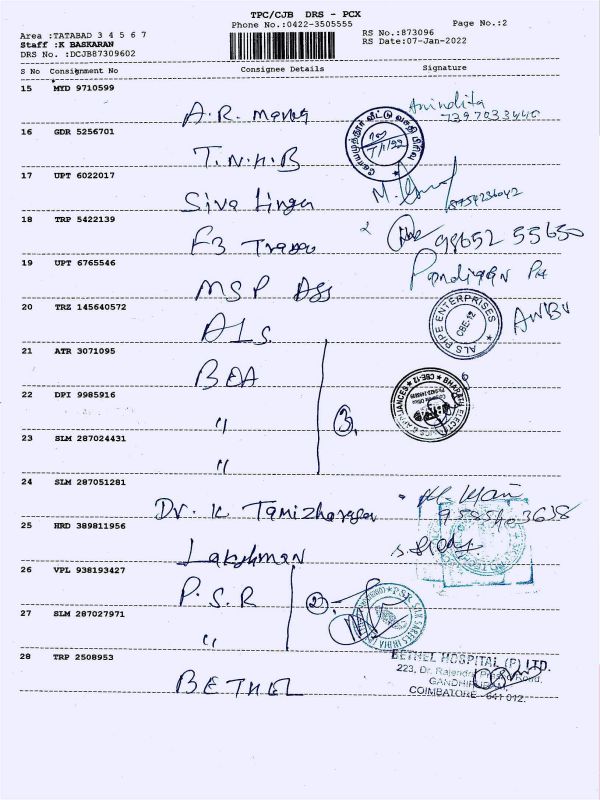 TPC/CJB DRS - PCX
Phone No.:0422-3505555
Page No.:2
Area :TATABAD 3 4 5 6 7
Staff :K BASKARAN
DRS No. :DCJB87309602
RS No.:873096
RS Date:07-Jan-2022
S No Consignment No Consignee Details Signature
15 MYD 9710599
A.R. Anindita
7397033440
16 GDR 5256701
T.N.H.B
7/1/22
17 UPT 6022017
Siva Linga M.
18 TRP 5422139
F3 98652 55650
19 UPT 6765546
MSP Ass
20 TRZ 145640572
ALS. ALS PIPE ENTERPRISES CBE-12 ANBU
21 ATR 3071095
BEA
22 DPI 9985916
" 3. BHARATH ELECTRONICS & APPLIANCES CBE-12
23 SLM 287024431
"
24 SLM 287051281
Dr. K Tamizharasan
25 HRD 389811956
Lakshman
26 VPL 938193427
P.S.R 2
27 SLM 287027971
"
28 TRP 2508953
BETHEL
BETHEL HOSPITAL (P) LTD.
223, Dr. Rajendra Prasad Road,
GANDHIPURAM
COIMBATORE - 641 012.